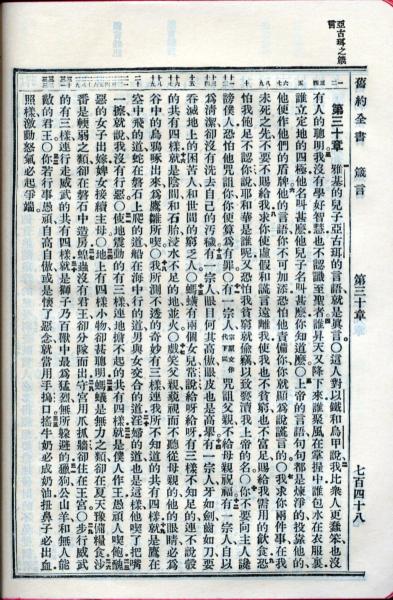 亞古珥之箴言
舊約全書　箴言　第三十章　七百四十八
第三十章　雅基的兒子亞古珥的言語就是眞言〇這人對以鐵和烏甲說我比衆人更蠢笨也沒
有人的聰明我沒有學好智慧也不認識至聖者誰昇天又降下來誰聚風在掌握中誰包水在衣服裏
誰立定地的四極他名叫甚麼他兒子名叫甚麼你知道麼〇上帝的言語句句都是煉淨的投靠他的
他便作他們的盾牌他的言語你不可加添恐怕他責備你你就顯為說謊言的〇我求你兩件事在我
未死之先不要不賜給我求你使虛假和謊言遠離我使我也不貧窮也不富足賜給我需用的飲食恐
怕我飽足不認你說耶和華是誰呢又恐怕我貧窮就偷竊以致褻瀆我上帝的名〇你不要向主人讒
謗僕人恐怕他咒詛你你便算為有罪〇有一宗人宗原文作代咒詛父親不給母親祝福有一宗人自以
為清潔卻沒有洗去自己的汚穢有一宗人眼目何其高傲眼皮也是高舉有一宗人牙如劍齒如刀要
吞滅地上的困苦人和世間的窮乏人〇螞蟥有兩個女兒常說給呀給呀有三樣不知足的連不說彀
的共有四樣就是陰間和石胎浸水不足的地並火〇戲笑父親藐視而不聽從母親的他的眼睛必為
谷中的烏鴉啄出來為鷹雛所喫〇我所測不透的奇妙有三樣連我所不知道的共有四樣就是鷹在
空中飛的道蛇在磐石上爬的道船在海中行的道男與女交合的道淫婦的道也是這樣他喫了把嘴
一擦就說我沒有行惡〇使地震動的有三樣連地擔不起的共有四樣就是僕人作王愚頑人喫飽醜
惡的女子出嫁婢女接續主母〇地上有四樣小物卻甚聰明螞蟻是無力之類卻在夏天豫備糧食沙
番是輭弱之類卻在磐石中造房蝗蟲沒有君王卻分隊而出守宮用爪抓牆卻住在王宮〇步行威武
的有三樣連行走威武的共有四樣就是獅子乃百獸中最為猛烈無所躱避的獵狗公山羊和無人能
敵的君王〇你若行事愚頑自高自傲或是懷了惡念就當用手摀口搖牛奶必成奶油扭鼻子必出血
照樣激動怒氣必起爭端